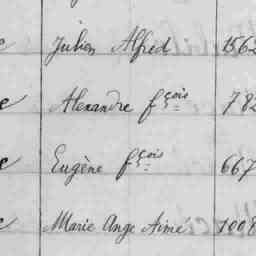 e Julien Alfred 1562
e Alexandre fçois 782
e Eugène fçois 667
e Marie Ange Aimé 1008